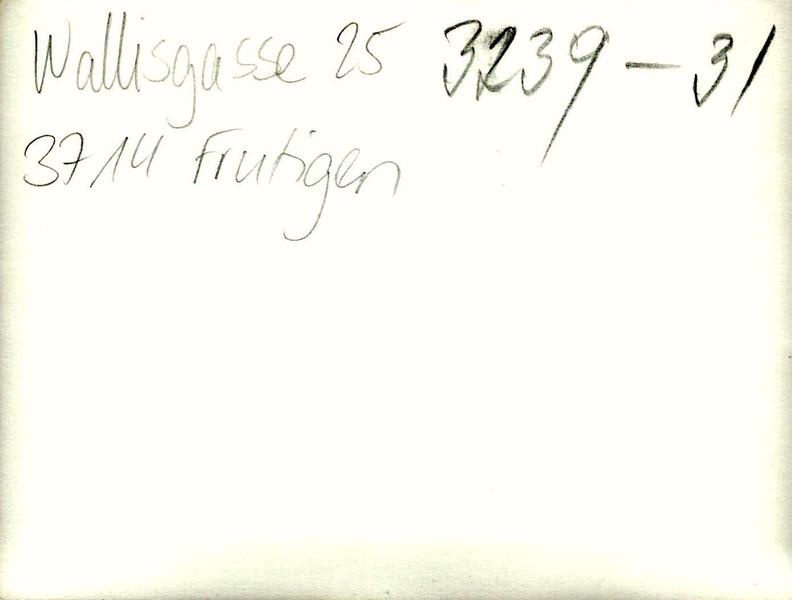 Wallisgasse 25 3239-31
3714 Frutigen